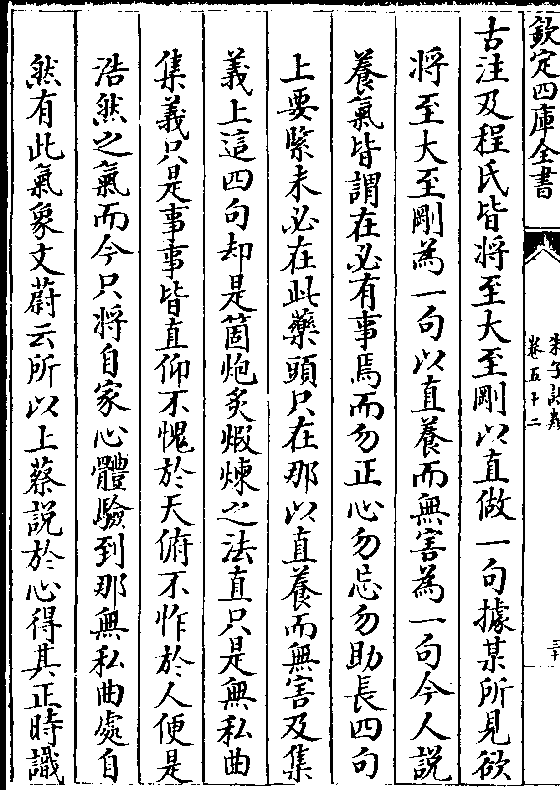 欽定四庫全書
朱子語類
卷五十二
三十
古注及程氏皆將至大至剛以直做一句據某所見欲
將至大至剛為一句以直養而無害為一句今人說
養氣皆謂在必有事焉而勿正心勿忘勿助長四句
上要緊未必在此藥頭只在那以直養而無害及集
義上這四句却是箇炮炙煆煉之法直只是無私曲
集義只是事事皆直仰不愧於天俯不怍於人便是
浩然之氣而今只將自家心體驗到那無私曲處自
然有此氣象文蔚云所以上蔡說於心得其正時識